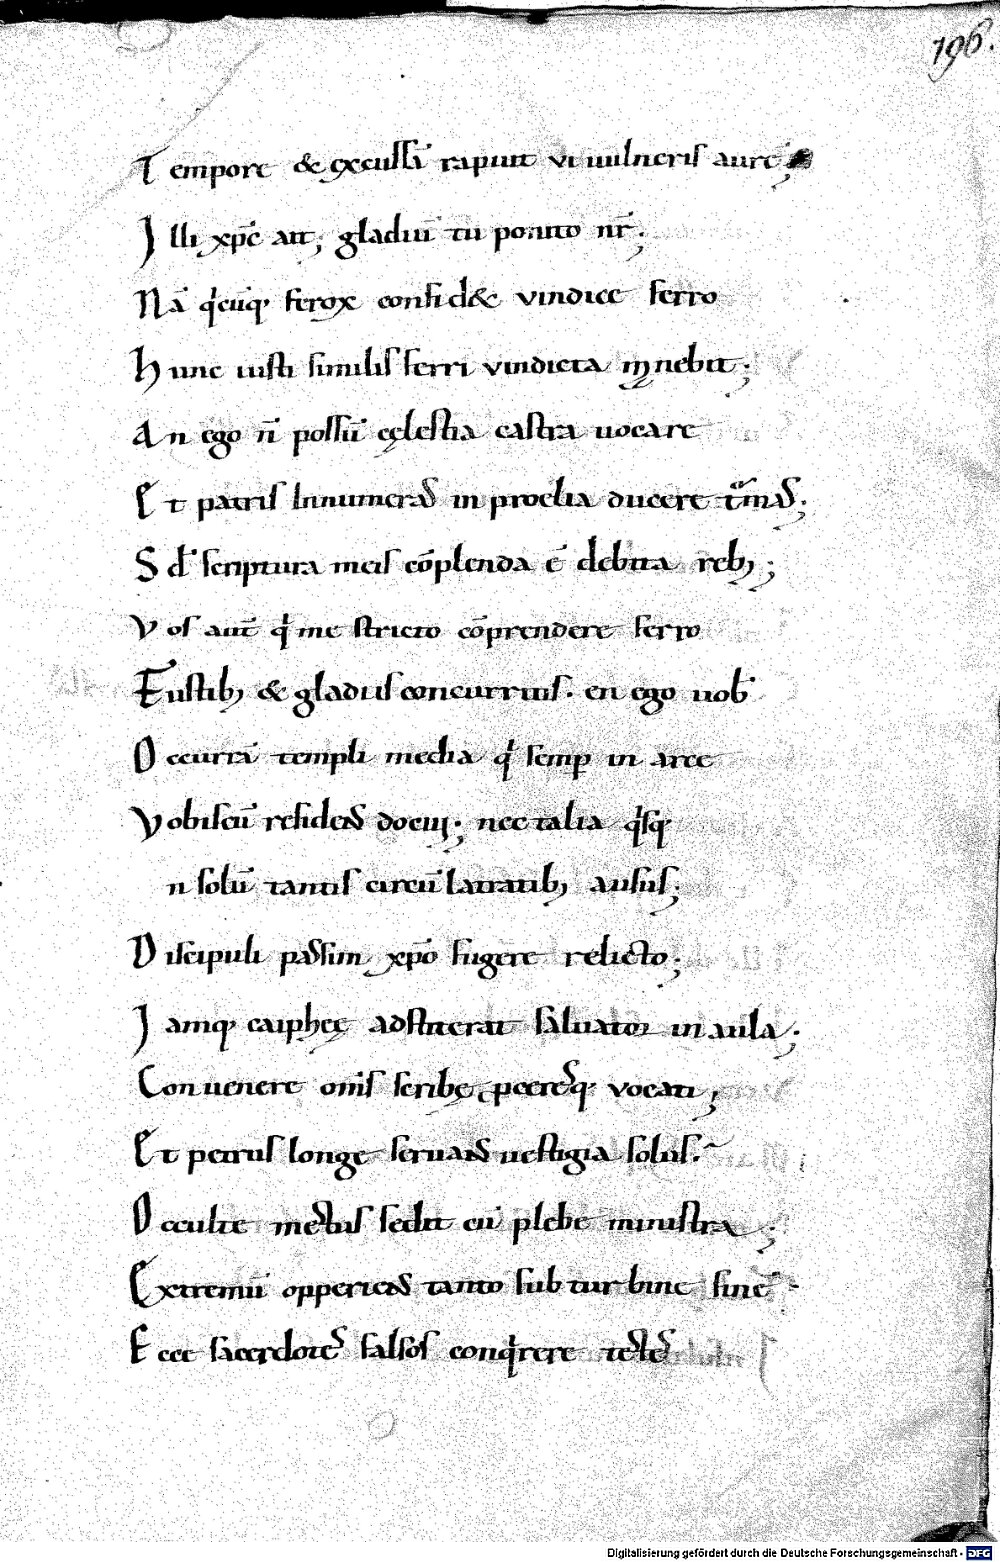 196.
Tempore & excussā rapuit vi uulneris aurē;
Illi xp̄c ait, gladiū tu ponito nr̄;
Nā q̍cūq; ferox confid& vindice ferro
Hunc iusti similis ferri vindicta manebit;
An ego n̄ possū cęlestia castra uocare
Et patris Innumeras in proelia ducere turmas;
S; scriptura meis cōplenda ē debita reb;;
Vos aut̄ q̍ me stricto cōprendere ferro
Fustib; & gladiis concurritis. en ego uob̄
Occurrā templi media q̍ semp in arce
Vobiscū residens docui; nec talia q̍sq;
n solū tantis circū latratib; ausus;
Discipuli passim xp̄o fugere relicto;
Iamq; caiphęę adstiterat saluator in aula;
Conuenere om̄s scribę, pceresq; vocati;
Et petrus longe seruans uestigia solus.
Occulte mestus sedit cū plebe ministra;
Extremū opperiens tanto sub turbine finē
Ecce sacerdotes falsos conq̍rere testes
Digitalisierung gefördert durch die Deutsche Forschungsgemeinschaft - DFG